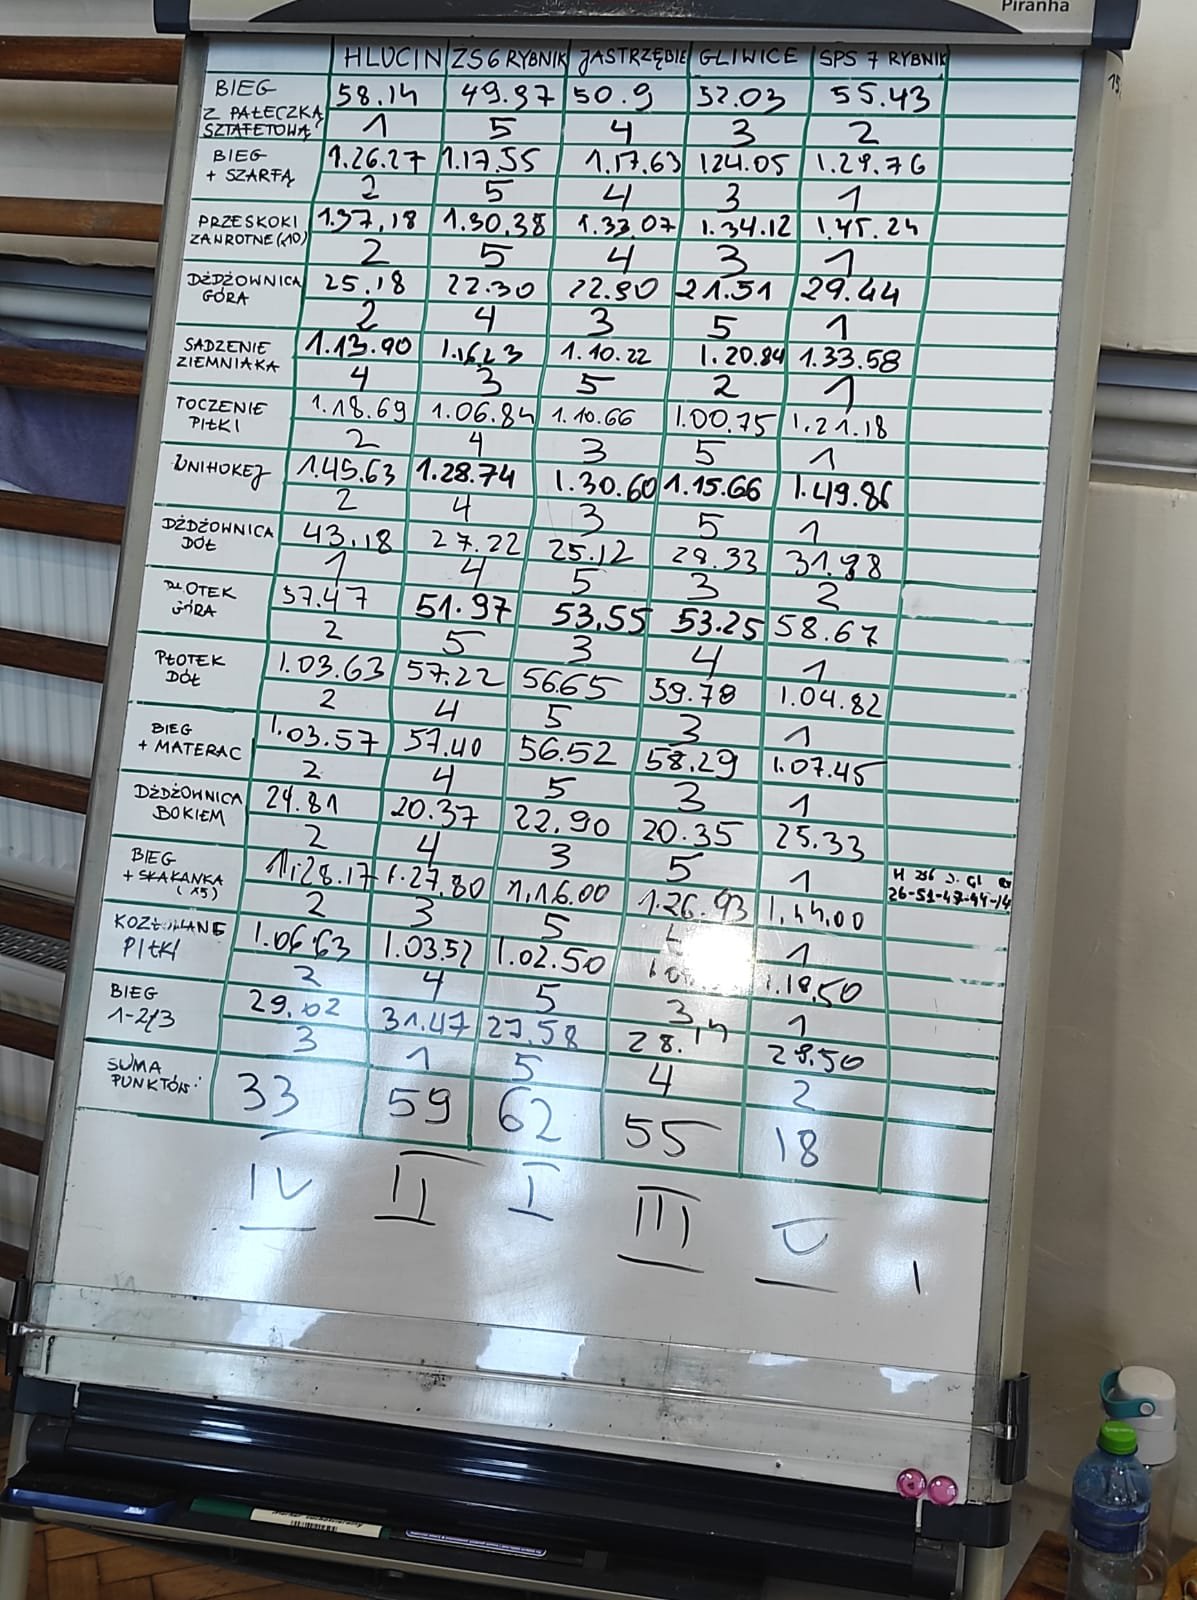 Piranha
HLUCIN ZS6 RYBNIK JASTRZĘBIE GLIWICE SPS 7 RYBNIK
BIEG Z PAŁECZKĄ SZTAFETOWĄ 58.14 49.97 50.9 52.03 55.43
1 5 4 3 2
BIEG + SZARFĄ 1.26.27 1.17.55 1.17.63 124.05 1.29.76
2 5 4 3 1
PRZESKOKI ZAWROTNE (x10) 1.37,18 1.30.38 1.33.07 1.34.12 1.45.24
2 5 4 3 1
DŻDŻOWNICA GÓRA 25.18 22.30 22.90 21.51 29.44
2 4 3 5 1
SADZENIE ZIEMNIAKA 1.13.90 1.16.23 1.10.22 1.20.84 1.33.58
4 3 5 2 1
TOCZENIE PIŁKI 1.18.69 1.06.84 1.10.66 1.00.75 1.21.18
2 4 3 5 1
UNIHOKEJ 1.45.63 1.28.74 1.30.60 1.15.66 1.49.86
2 4 3 5 1
DŻDŻOWNICA DÓŁ 43.18 27.22 25.12 28.33 31.98
1 4 5 3 2
PŁOTEK GÓRA 57.47 51.97 53.55 53.25 58.67
2 5 3 4 1
PŁOTEK DÓŁ 1.03.63 57.22 56.65 59.78 1.04.82
2 4 5 3 1
BIEG + MATERAC 1.03.57 57.40 56.52 58.29 1.07.45
2 4 5 3 1
DŻDŻOWNICA BOKIEM 24.81 20.37 22.90 20.35 25.33
2 4 3 5 1
BIEG + SKAKANKA (x5) 1,28.17 1.27.80 1,16.00 1.26.93 1.44.00
H ZS6 J. Gl
26-51-47-44-14
2 3 5 1
KOZŁOWANE PIŁKI 1.06.63 1.03.52 1.02.50 1.18.50
2 4 5 3 1
BIEG 1-2/3 29.02 31.47 27.58 28.14 28.50
3 1 5 4 2
SUMA PUNKTÓW: 33 59 62 55 18
IV II I III V